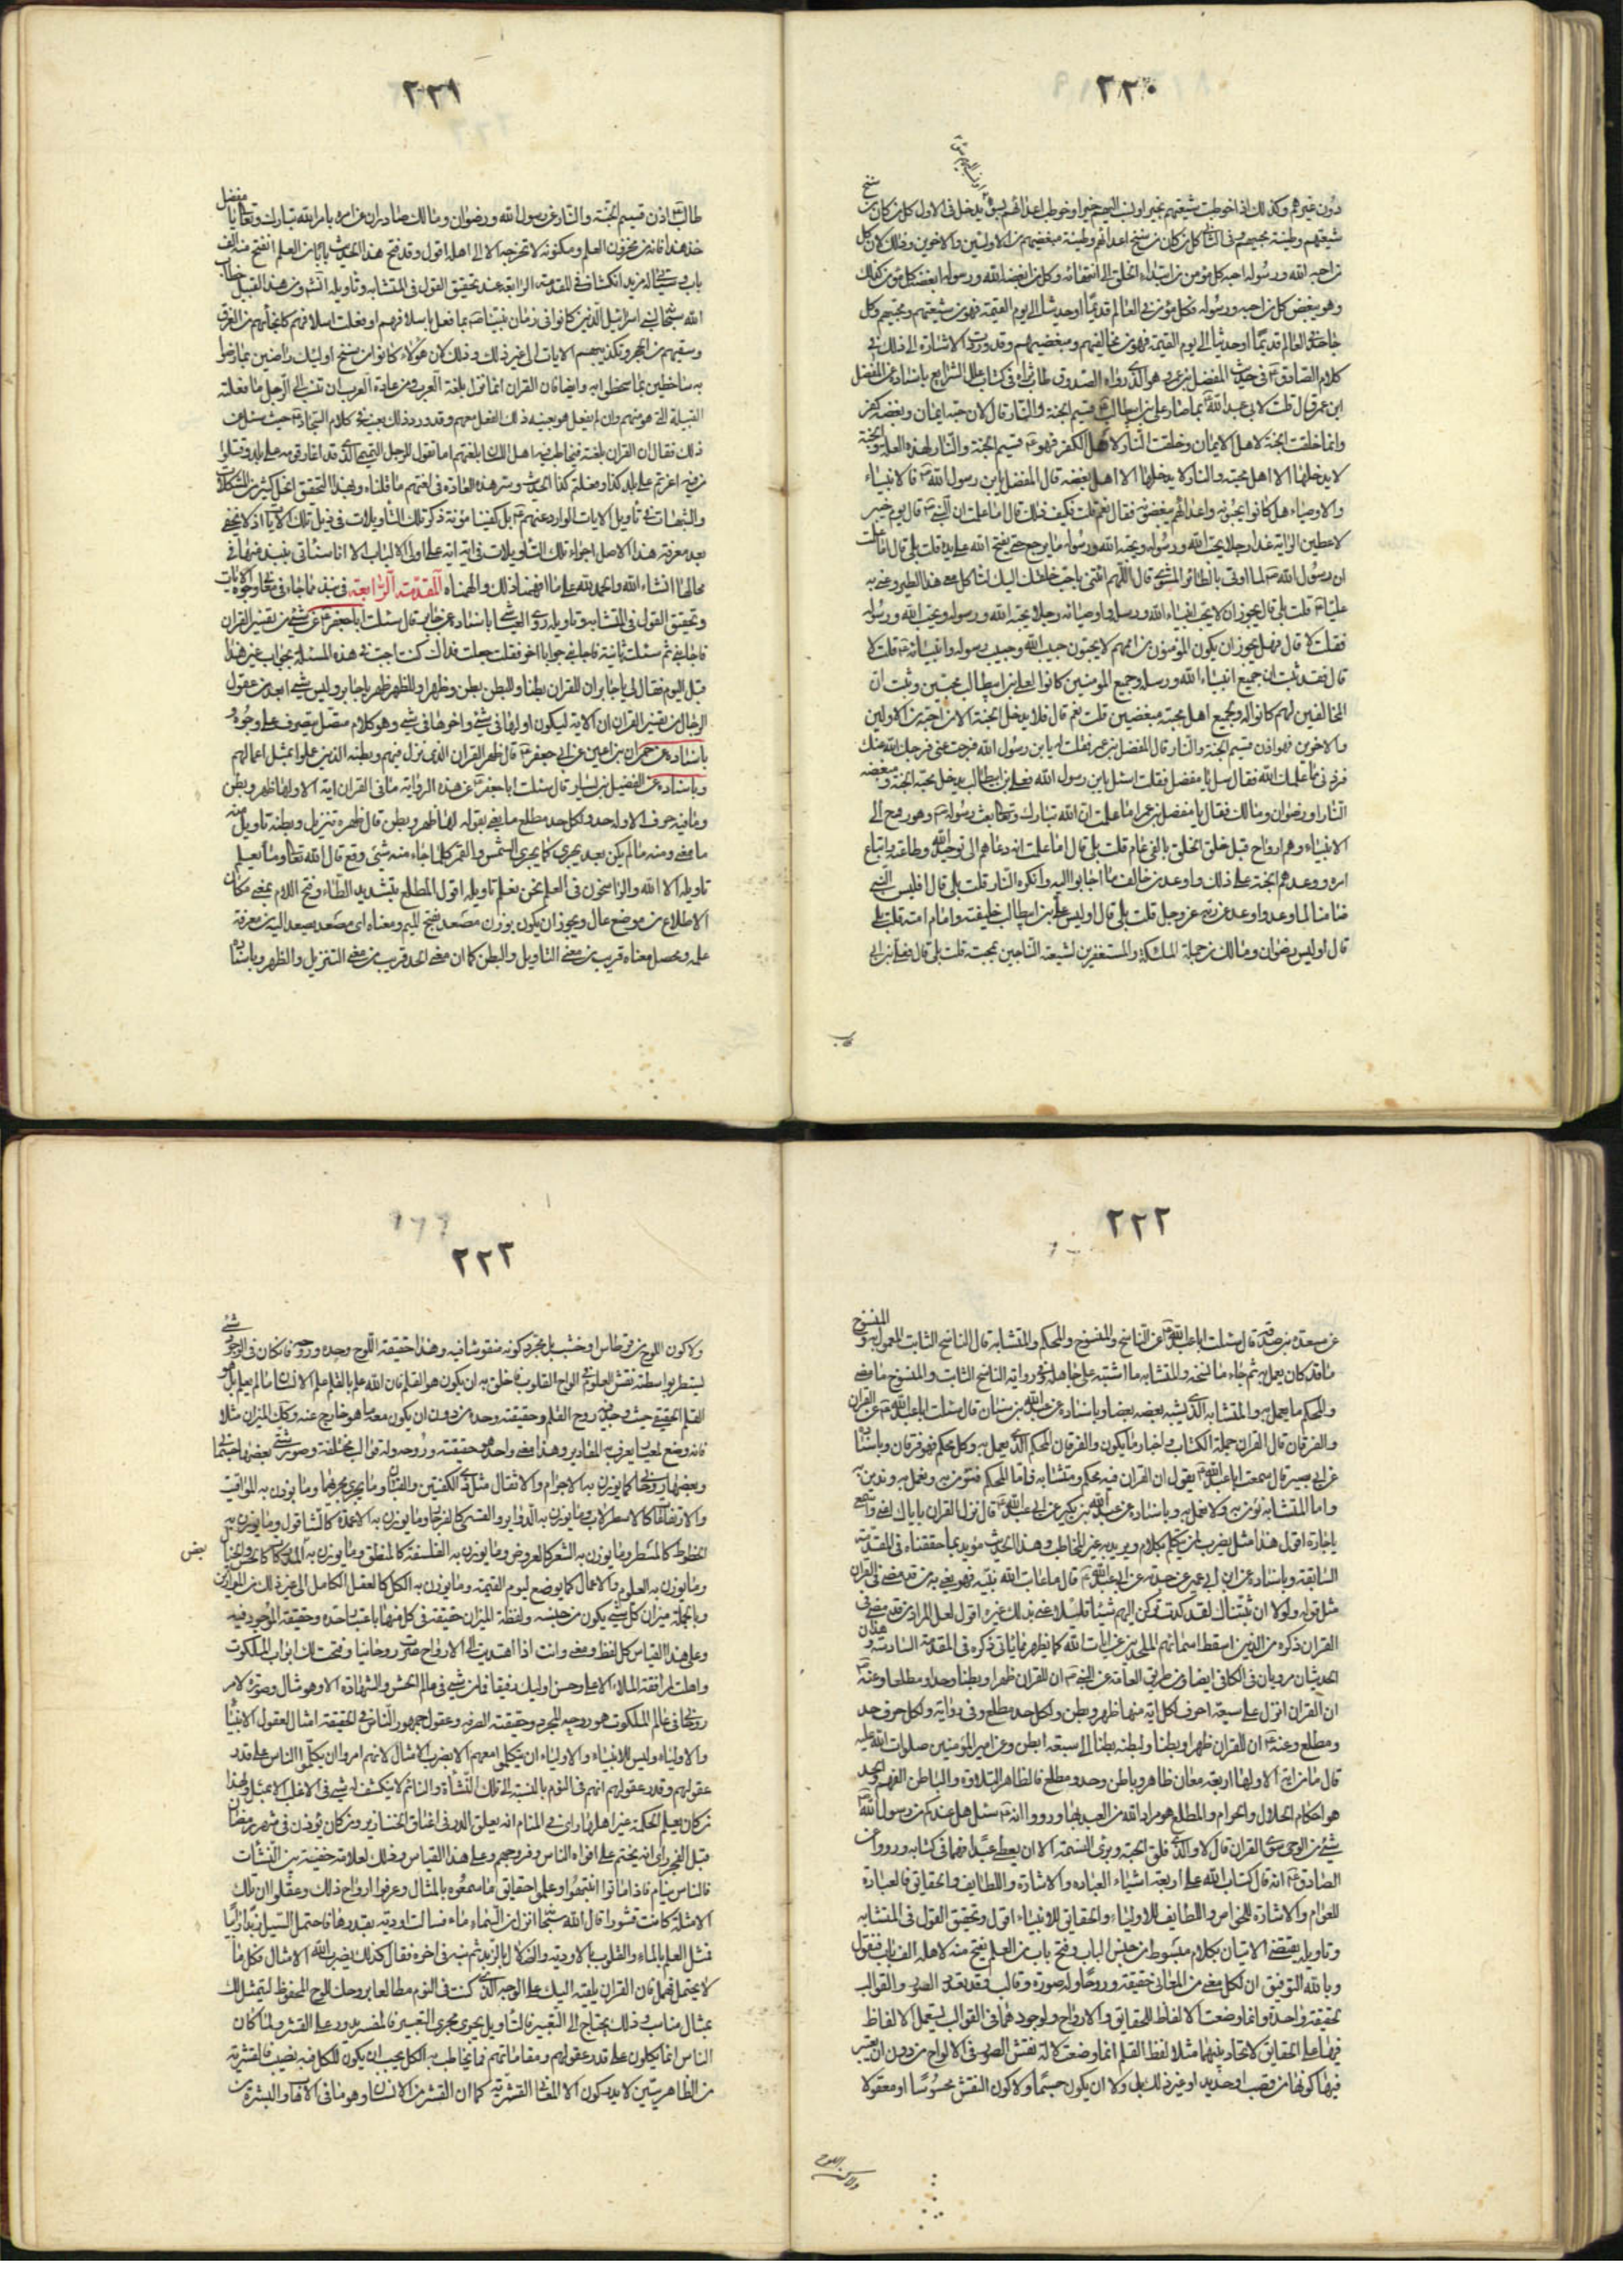 ٢٢٠
دون غيرهم وكذلك اذا خوطبت شيعتهم بخير او نسب اليهم خير او خوطب اعدائهم بسوء يدخل فى الاول كل من كان من سنخ
شيعتهم وطينة محبيهم وفى الثانى كل من كان من سنخ اعدائهم وطينة مبغضيهم من الاولين والاخرين وذلك لان كل
من احبه الله ورسوله احبه كل مؤمن من ابتداء الخلق الى انتهائه وكل من ابغضه الله ورسوله ابغضه كل مؤمن كذلك
وهو يبغض كل من احبه ورسوله فكل مؤمن فى العالم قديما او حديثا الى يوم القيمة فهو من شيعتهم ومحبيهم وكل
جاحد فى العالم قديما او حديثا الى يوم القيمة فهو من مخالفيهم ومبغضيهم وقد وردت الاشارة الى ذلك فى
كلام الصادق فى حديث المفضل بن عمر وهو الذى رواه الصدوق طاب ثراه فى كتاب علل الشرايع باسناده عن المفضل
ابن عمر قال قلت لابى عبد الله بما صار على بن ابيطالب قسيم الجنة والنار قال لان حبه ايمان وبغضه كفر
وانما خلقت الجنة لاهل الايمان وخلقت النار لاهل الكفر فهو قسيم الجنة والنار لهذه العلة والجنة
لا يدخلها الا اهل محبته والنار لا يدخلها الا اهل بغضه قال المفضل يابن رسول الله فالانبياء
والاوصياء هل كانوا يحبونه واعدائهم يبغضونه فقال نعم قلت فكيف ذلك قال اما علمت ان النبى قال يوم خيبر
لاعطين الراية غدا رجلا يحب الله ورسوله ويحبه الله ورسوله ما يرجع حتى يفتح الله على يده قلت بلى قال اما علمت
ان رسول الله لما اوتى بالطائر المشوى قال اللهم ائتنى باحب خلقك اليك ياكل معى هذا الطير وعنى به
عليا قلت بلى قال يجوز ان لا يحب انبياء الله ورسله واوصيائه رجلا يحبه الله ورسوله ويحب الله ورسوله
فقلت لا قال فهل يجوز ان يكون المؤمنون من اممهم لا يحبون حبيب الله وحبيب رسوله وانبيائه قلت لا
قال فقد ثبت ان جميع انبياء الله ورسله وجميع المومنين كانوا لعلى بن ابيطالب محبين وثبت ان
المخالفين لهم كانوا له ولجميع اهل محبته مبغضين قلت نعم قال فلا يدخل الجنة الا من احبه من الاولين
والاخرين فهو اذن قسيم الجنة والنار قال المفضل بن عمر فقلت له يابن رسول الله فرجت عنى فرج الله عنك
فزدنى مما علمك الله فقال سل يا مفضل فقلت اسئل يابن رسول الله فعلى بن ابيطالب يدخل محبه الجنة ومبغضه
النار او رضوان ومالك فقال يا مفضل بن عمر اما علمت ان الله تبارك وتعالى بعث رسوله وهو روح الى
الانبياء وهم ارواح قبل خلق الخلق بالفى عام قلت بلى قال اما علمت انه دعاهم الى توحيد الله وطاعته واتباع
امره ووعدهم الجنة على ذلك واوعد من خالف ما اجابوا اليه وانكره النار قلت بلى قال افليس النبى
ضامنا لما وعد واوعد عن ربه عز وجل قلت بلى قال اوليس على بن ابيطالب خليفته وامام امته قلت بلى
قال اوليس رضوان ومالك من جملة الملئكة والمستغفرين لشيعته الناجين بمحبته قلت بلى قال فعلى بن ابى
٢٢١
طالب اذن قسيم الجنة والنار عن رسول الله ورضوان ومالك صادران عن امره بامر الله تبارك وتعالى يا مفضل
خذ هذا فانه من مخزون العلم ومكنونه لا تخرجه الا الى اهله اقول وقد فتح هذا الحديث بابا من العلم انفتح منه الف
باب وسيأتى له مزيد انكشاف فى المقدمة الرابعة عند تحقيق القول فى المتشابه وتاويله انشم ومن هذا القبيل خطاب
الله سبحانه لبنى اسرائيل الذين كانوا فى زمان نبينا بما فعل باسلافهم او فعلت اسلافهم كانجائهم من الغرق
وسقيهم من الحجر وتكذيبهم الايات الى غير ذلك وذلك لان هؤلاء كانوا من سنخ اوليك راضين بما رضوا
به ساخطين بما سخطوا به وايضا فان القران انما نزل بلغة العرب ومن عادة العرب ان تنسب الى الرجل ما فعلته
القبيلة التى هو منهم وان لم يفعل هو بعينه ذلك الفعل معهم وقد ورد ذلك بعينه فى كلام السجاد حيث سئل عن
ذلك فقال ان القران بلغة فيخاطب فيه اهل اللسان بلغتهم اما تقول للرجل التميمى الذى قد اغار قومه على بلد وقتلوا
من فيه اغرتم على بلد كذا وفعلتم كذا الحديث وسر هذه العادة فى لغتهم ما قلناه وبهذا التحقيق انحل كثير من المشكلات
والشبهات فى تاويل الايات الوارد عنهم بل كفينا مؤنة ذكر تلك التاويلات فى ذيل تلك الايات اذ لا يخفى
بعد معرفة هذا الاصل اجراء تلك التاويلات فى اية اية على اولى الالباب الا انا سنأتى بنبذ منها فى
محالها انشاء الله والحمد لله على ما افهمنا ذلك والهمناه المقدمة الرابعة فى نبذ مما جاء فى معانى وجوه الايات
وتحقيق القول فى المتشابه وتاويله روى العياشى باسناده عن جابر قال سئلت ابا جعفر عن شئ من تفسير القران
فاجابنى ثم سئلت ثانية فاجابنى بجواب اخر فقلت جعلت فداك كنت اجبت فى هذه المسئلة بجواب غير هذا
قبل اليوم فقال لى يا جابر ان للقران بطنا وللبطن بطن وظهرا وللظهر ظهر يا جابر وليس شئ ابعد من عقول
الرجال من تفسير القران ان الاية ليكون اولها فى شئ واخرها فى شئ وهو كلام متصل يتصرف على وجوه و
باسناده عن حمران بن اعين عن ابى جعفر قال ظهر القران الذى نزل فيهم وبطنه الذين عملوا بمثل اعمالهم
وباسناده عن الفضيل بن يسار قال سئلت ابا جعفر عن هذه الرواية ما فى القران اية الا ولها ظهر وبطن
وما فيه حرف الا وله حد ولكل حد مطلع ما يعنى بقوله لها ظهر وبطن قال ظهره تنزيل وبطنه تاويله منه
ما مضى ومنه ما لم يكن بعد يجرى كما يجرى الشمس والقمر كلما جاء منه شئ وقع قال الله تعالى وما يعلم
تاويله الا الله والراسخون فى العلم نحن نعلم تاويله اقول المطلع بتشديد الطاء وفتح اللام بمعنى مكان
الاطلاع من موضع عال ويجوز ان يكون بوزن مصعد بفتح الميم ومعناه اى مصعد يصعد اليه من معرفة
علمه ومحصل معناه قريب من معنى التاويل والبطن كما ان معنى الحد قريب من معنى التنزيل والظهر وباسناده
٢٢٢
عن مسعدة بن صدقة قال سئلت ابا عبد الله عن الناسخ والمنسوخ والمحكم والمتشابه قال الناسخ الثابت المعمول به والمنسوخ
ما قد كان يعمل به ثم جاء ما نسخه والمتشابه ما اشتبه على جاهله وفى رواية الناسخ الثابت والمنسوخ ما مضى
والمحكم ما يعمل به والمتشابه الذى يشبه بعضه بعضا وباسناده عن عبد الله بن سنان قال سئلت ابا عبد الله عن القران
والفرقان قال القران جملة الكتاب واخبار ما يكون والفرقان المحكم الذى يعمل به وكل محكم فهو فرقان وباسناده
عن ابى بصير قال سمعت ابا عبد الله يقول ان القران فيه محكم ومتشابه فاما المحكم فنؤمن به ونعمل به وندين به
واما المتشابه نؤمن به ولا نعمل به وباسناده عن عبد الله بن بكير عن ابى عبد الله قال نزل القران باياك اعنى واسمعى
يا جارة اقول هذا مثل يضرب لمن يتكلم بكلام ويريد به غير المخاطب وهذا الحديث مؤيد بما حققناه فى المقدمة
السابقة وباسناده عن ابن ابى عمير عمن حدثه عن ابى عبد الله قال ما عاتب الله نبيه فهو يعنى به من قد مضى فى القران
مثل قوله ولولا ان ثبتناك لقد كدت تركن اليهم شيئا قليلا عنى بذلك غيره اقول لعل المراد بمن قد مضى فى
القران ذكره من الذين اسقط اسمائهم الملحدين عن ايات الله كما يظهر مما ياتى ذكره فى المقدمة السادسة وهذان
الحديثان مرويان فى الكافى ايضا ومن طريق العامة عن النبى ان للقران ظهرا وبطنا وحدا ومطلعا وعنه
ان القران انزل على سبعة احرف لكل اية منها ظهر وبطن ولكل حد مطلع وفى رواية ولكل حرف حد
ومطلع وعنه ان للقران ظهرا وبطنا ولبطنه بطنا الى سبعة ابطن وعن امير المؤمنين صلوات الله عليه
قال ما من اية الا ولها اربعة معان ظاهر وباطن وحد ومطلع فالظاهر التلاوة والباطن الفهم والحد
هو احكام الحلال والحرام والمطلع هو مراد الله من العبد بها ورووا انه سئل هل عندكم من رسول الله
شئ من الوحى سوى القران قال لا والذى فلق الحبة وبرئ النسمة الا ان يعطى عبدا فهما فى كتابه ورووا عن
الصادق انه قال كتاب الله على اربعة اشياء العبارة والاشارة واللطايف والحقايق فالعبارة
للعوام والاشارة للخواص واللطايف للاولياء والحقايق للانبياء اقول وتحقيق القول فى المتشابه
وتاويله يقتضى الاتيان بكلام مبسوط من جنس اللباب وفتح باب من العلم ينفتح منه لاهله الف باب فنقول
وبالله التوفيق ان لكل معنى من المعانى حقيقة وروحا وله صورة وقالب وقد يتعدد الصور والقوالب
لحقيقة واحدة وانما وضعت الالفاظ للحقايق والارواح ولوجودهما فى القوالب يستعمل الالفاظ
فيها على الحقيقة لاتحاد بينهما مثلا لفظ القلم انما وضعت لالة نقش الصور فى الالواح من دون ان يعتبر
فيها كونها من قصب او حديد او غير ذلك بل ولا ان يكون جسما ولا كون النقش محسوسا او معقولا
ولا كون اللوح
٢٢٣
ولا كون اللوح من قرطاس او خشب بل مجرد كونه منقوشا فيه وهذا حقيقة اللوح وحده وروحه فان كان فى الوجود شئ
يستطر بواسطته نقش العلوم فى الواح القلوب فاخلق به ان يكون هو القلم فان الله علم بالقلم علم الانسان ما لم يعلم بل هو
القلم الحقيقى حيث وجد فيه روح القلم وحقيقته وحده من دون ان يكون معه ما هو خارج عنه وكذلك الميزان مثلا
فانه وضع لمعيار يعرف به المقادير وهذا معنى واحد هو حقيقته وروحه وله قوالب مختلفة وصور شتى بعضها جسمانى
وبعضها روحانى كما يوزن به الاجرام والاثقال مثل ذى الكفتين والقبان وما يجرى مجريهما وما يوزن به المواقيت
والارتفاعات كالاسطرلاب وما يوزن به الدواير والقسى كالفرجار وما يوزن به الاعمدة كالشاقول وما يوزن به
الخطوط كالمسطر وما يوزن به الشعر كالعروض وما يوزن به الفلسفة كالمنطق وما يوزن به بعض المدركات كالحس والخيال
وما يوزن به العلوم والاعمال كما يوضع ليوم القيمة وما يوزن به الكل كالعقل الكامل الى غير ذلك من الموازين
وبالجملة ميزان كل شئ يكون من جنسه ولفظة الميزان حقيقة فى كل منها باعتبار حده وحقيقته الموجود فيه
وعلى هذا القياس كل لفظ ومعنى وانت اذا اهتديت الى الارواح صرت روحانيا وفتحت لك ابواب الملكوت
واهلت لمرافقة الملاء الاعلى وحسن اوليك رفيقا فما من شئ فى عالم الحس والشهادة الا وهو مثال وصورة لامر
روحانى فى عالم الملكوت هو روحه المجرد وحقيقته الصرفة وعقول جمهور الناس فى الحقيقة امثال لعقول الانبياء
والاولياء وليس للانبياء والاولياء ان يتكلموا معهم الا بضرب الامثال لانهم امروا ان يكلموا الناس على قدر
عقولهم وقدر عقولهم انهم فى النوم بالنسبة الى تلك النشأة والنائم لا ينكشف له شئ فى الاغلب الا بمثل ولهذا
من كان يعلم الحكمة غير اهلها راى فى المنام انه يعلق الدر فى اعناق الخنازير ومن كان يؤذن فى شهر رمضان
قبل الفجر راى انه يختم على افواه الناس وفروجهم وعلى هذا القياس وذلك لعلاقة خفية بين النشآت
فالناس نيام فاذا ماتوا انتبهوا وعلموا حقايق ما سمعوه بالمثال وعرفوا ارواح ذلك وعقلوا ان تلك
الامثلة كانت قشورا قال الله سبحانه انزل من السماء ماء فسالت اودية بقدرها فاحتمل السيل زبدا رابيا
فمثل العلم بالماء والقلوب بالاودية والضلال بالزبد ثم نبه فى اخره فقال كذلك يضرب الله الامثال فكل ما
لا يحتمل فهمك فان القران يلقيه اليك على الوجه الذى كنت فى النوم مطالعا بروحك للوح المحفوظ ليتمثل لك
بمثال مناسب وذلك يحتاج الى التعبير فالتاويل يجرى مجرى التعبير فالمفسر يدور على القشر ولما كان
الناس انما يكلمون على قدر عقولهم ومقاماتهم فما يخاطب به الكل يجب ان يكون للكل فيه نصيب فالقشرية
من الظاهريين لا يدركون الا المعانى القشرية كما ان القشر من الانسان وهو ما فى الاهاب والبشرة من